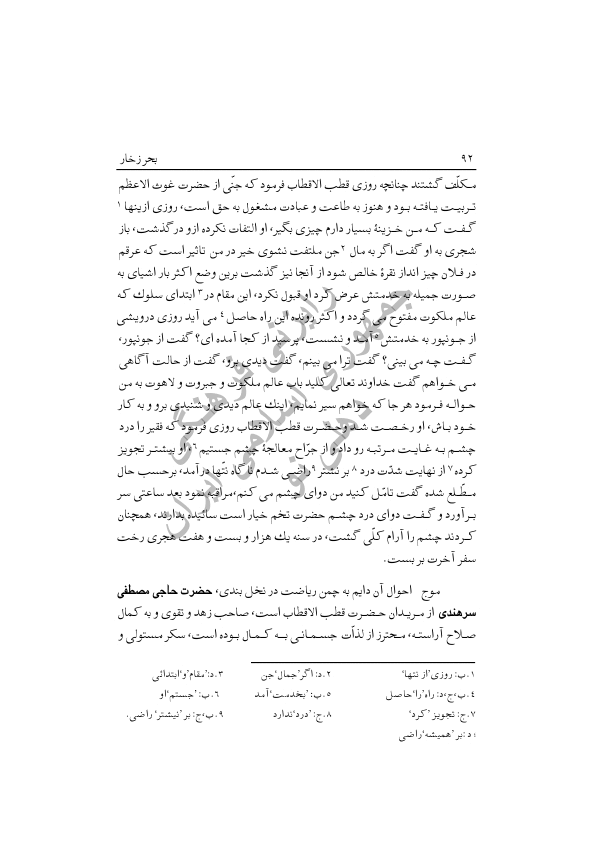 ۹۲ بحر زخار
مکلّف گشتند چنانچه روزی قطب الاقطاب فرمود که جنّی از حضرت غوث الاعظم
تربیت یافته بود و هنوز به طاعت و عبادت مشغول به حق است، روزی ازینها ۱
گفت که من خزینهٔ بسیار دارم چیزی بگیر، او التفات نکرده ازو درگذشت، باز
شجری به او گفت اگر به مال ۲ جن ملتفت نشوی خیر در من تاثیر است که عرقم
در فلان چیز انداز نقرهٔ خالص شود از آنجا نیز گذشت برین وضع اکثر بار اشیای به
صورت جمیله به خدمتش عرض کرد او قبول نکرد، این مقام در ۳ ابتدای سلوك که
عالم ملکوت مفتوح می گردد و اکثر رونده این راه حاصل ٤ می آید روزی درویشی
از جونپور به خدمتش ٥ آمد و نشست، پرسید از کجا آمده ای؟ گفت از جونپور،
گفت چه می بینی؟ گفت ترا می بینم، گفت دیدی برو، گفت از حالت آگاهی
می خواهم گفت خداوند تعالی کلید باب عالم ملکوت و جبروت و لاهوت به من
حواله فرمود هر جا که خواهم سیر نمایم، اینك عالم دیدی و شنیدی برو و به کار
خود باش، او رخصت شد وحضرت قطب الاقطاب روزی فرمود که فقیر را درد
چشم به غایت مرتبه رو داد و از جرّاح معالجهٔ چشم جستیم ٦، او بیشتر تجویز
کرده ۷ از نهایت شدّت درد ۸ بر نشتر ۹ راضی شدم تا گاه نتّها درآمد، برحسب حال
مطّلع شده گفت تامّل کنید من دوای چشم می کنم، مراقبه نمود بعد ساعتی سر
برآورد و گفت دوای درد چشم حضرت تخم خیار است سائیده بدارند، همچنان
کردند چشم را آرام کلّی گشت، در سنه یك هزار و بست و هفت هجری رخت
سفر آخرت بر بست.
موج احوال آن دایم به چمن ریاضت در نخل بندی، حضرت حاجی مصطفی
سرهندی از مریدان حضرت قطب الاقطاب است، صاحب زهد و تقوی و به کمال
صلاح آراسته، محترز از لذاّت جسمانی به کمال بوده است، سکر مستولی و
۱. ب: روزی ’از نتها‘ ۲. د: اگر ’جمال‘ جن ۳. د: ’مقام‘ و ’ابتدائی
٤. ب، ج، د: راه ’را‘ حاصل ٥. ب: ’بخدمت‘ آمد ٦. ب: ’جستم‘ او
۷. ج: تجویز ’کرد‘ ۸. ج: ’درد‘ ندارد ۹. ب، ج: بر ’نیشتر‘ راضی.
؛ د: بر ’همیشه‘ راضی
رایزنی فرهنگی
جمهوری اسلامی ایران
دهلی نو